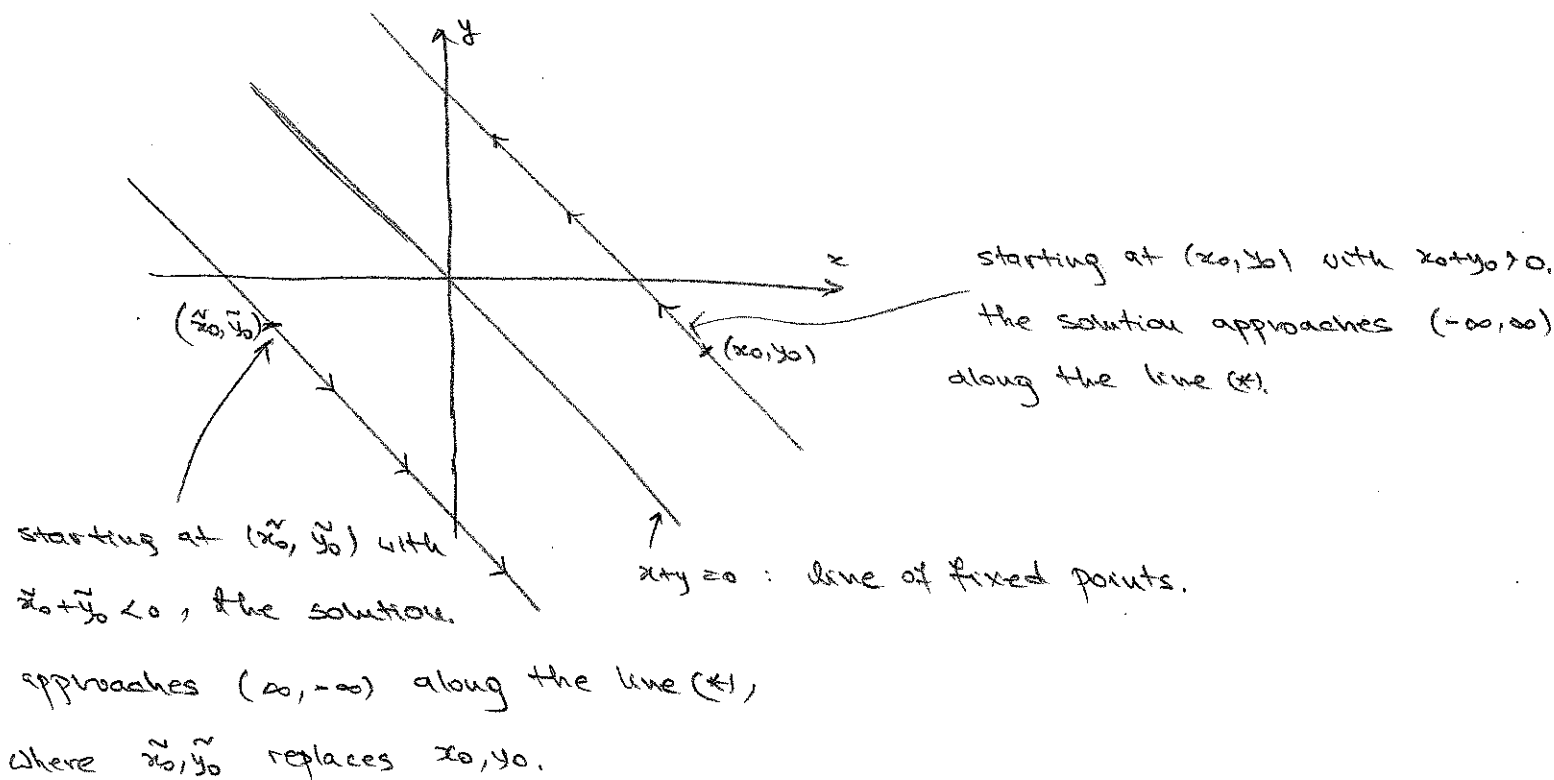 y
x
starting at (x₀, y₀) with x₀+y₀>0,
the solution approaches (-∞,∞)
along the line (*).
(x̃₀, ỹ₀)
(x₀, y₀)
starting at (x̃₀, ỹ₀) with
x̃₀+ỹ₀<0, the solution.
approaches (∞,-∞) along the line (*),
where x̃₀,ỹ₀ replaces x₀,y₀.
x+y=0 : line of fixed points.